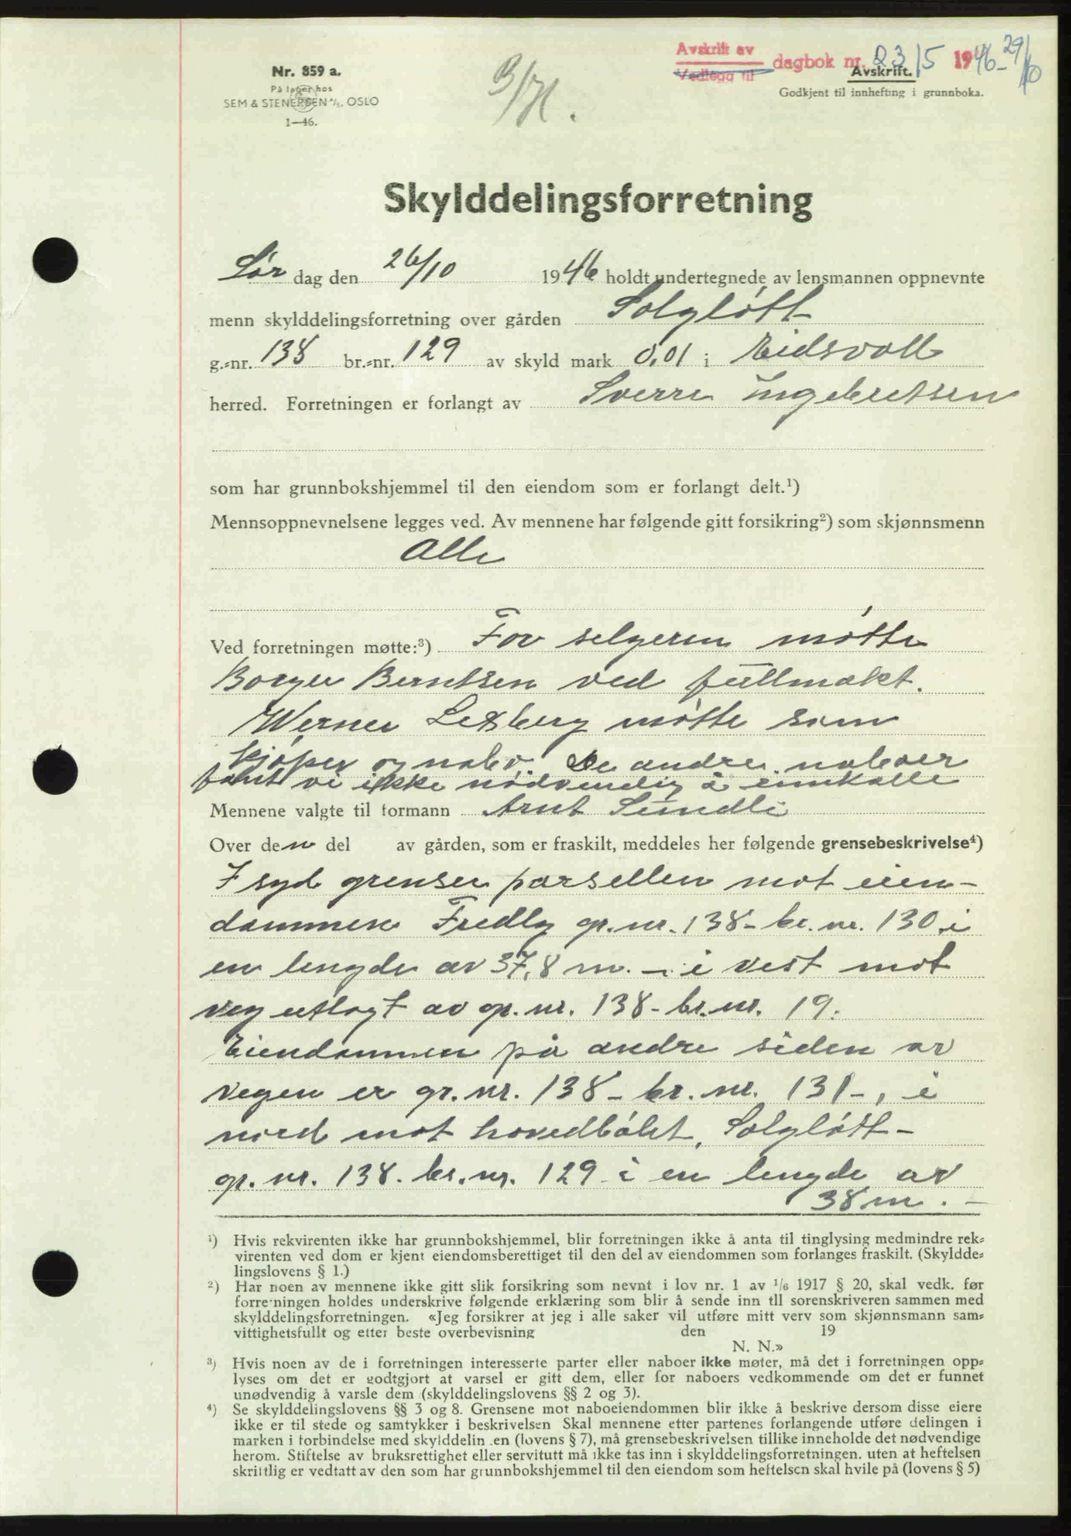 Avskrift av
Vedlegg til dagbok nr. 2315 1946 - 29/10
Nr. 859 a.
På lager hos
SEM & STENERSEN A/S. OSLO
1—46.
Avskrift.
Godkjent til innhefting i grunnboka.
Skylddelingsforretning
Lør dag den 26/10 1946 holdt undertegnede av lensmannen oppnevnte
menn skylddelingsforretning over gården Solgløtt
g.-nr. 138 br.-nr. 129 av skyld mark 0,01 i Eidsvoll
herred. Forretningen er forlangt av Sverre Ingebretsen
som har grunnbokshjemmel til den eiendom som er forlangt delt.¹)
Mennsoppnevnelsene legges ved. Av mennene har følgende gitt forsikring²) som skjønnsmenn
Alle
Ved forretningen møtte:³) For selgeren møtte
Borger Berntsen ved fullmakt.
Werner møtte som
kjøper og nabo. De andre naboer
fant vi ikke nødvendig å innkalle
Mennene valgte til formann Arnt Sundli
Over den del av gården, som er fraskilt, meddeles her følgende grensebeskrivelse⁴)
I syd grenser parsellen mot eien-
dommen Fredly gr. nr. 138 - br. nr. 130, i
en lengde av 37,8 m. - i vest mot
veg utlagt av gr. nr. 138 - br. nr. 19.
Eiendommen på andre siden av
vegen er gr. nr. 138 - br. nr. 131 -, i
nord mot hovedbølet, Solgløtt -
gr. nr. 138. br. nr. 129 i en lengde av
38 m. -
¹) Hvis rekvirenten ikke har grunnbokshjemmel, blir forretningen ikke å anta til tinglysing medmindre rek-
virenten ved dom er kjent eiendomsberettiget til den del av eiendommen som forlanges fraskilt. (Skyldde-
lingslovens § 1.)
²) Har noen av mennene ikke gitt slik forsikring som nevnt i lov nr. 1 av 1/6 1917 § 20, skal vedk. før
forretningen holdes underskrive følgende erklæring som blir å sende inn til sorenskriveren sammen med
skylddelingsforretningen. «Jeg forsikrer at jeg i alle saker vil utføre mitt verv som skjønnsmann sam-
vittighetsfullt og etter beste overbevisning den 19
N. N.»
³) Hvis noen av de i forretningen interesserte parter eller naboer ikke møter, må det i forretningen opp-
lyses om det er godtgjort at varsel er gitt dem, eller for naboers vedkommende om det er funnet
unødvendig å varsle dem (skylddelingslovens §§ 2 og 3).
⁴) Se skylddelingslovens §§ 3 og 8. Grensene mot naboeiendommen blir ikke å beskrive dersom disse eiere
ikke er til stede og samtykker i beskrivelsen Skal mennene etter partenes forlangende utføre delingen i
marken i forbindelse med skylddelin en (lovens § 7), må grensebeskrivelsen tillike inneholde det nødvendige
herom. Stiftelse av bruksrettighet eller servitutt må ikke tas inn i skylddelingsforretningen. uten at heftelsen
skriftlig er vedtatt av den som har grunnbokshjemmel til den eiendom som heftelsen skal hvile på (lovens § 5)